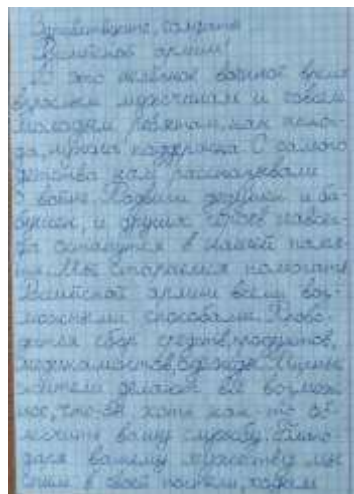 Здравствуйте, солдаты
Российской армии!
В это нелёгкое военное время
взрослым мужчинам и совсем
молодым ребятам, как никог-
да, нужна поддержка. С самого
детства нам рассказывали
о войне. Подвиги дедушек и ба-
бушек, и других героев навсег-
да останутся в нашей памя-
ти. Мы стараемся помогать
Российской армии всеми воз-
можными способами. Прово-
дятся сбор средств, продуктов,
медикаментов, одежды.
жители делают всё возмож-
ное, что-бы хоть как-то об-
легчить вашу службу. Благо-
даря вашему мужеству мы
спим в своей постели, ходим